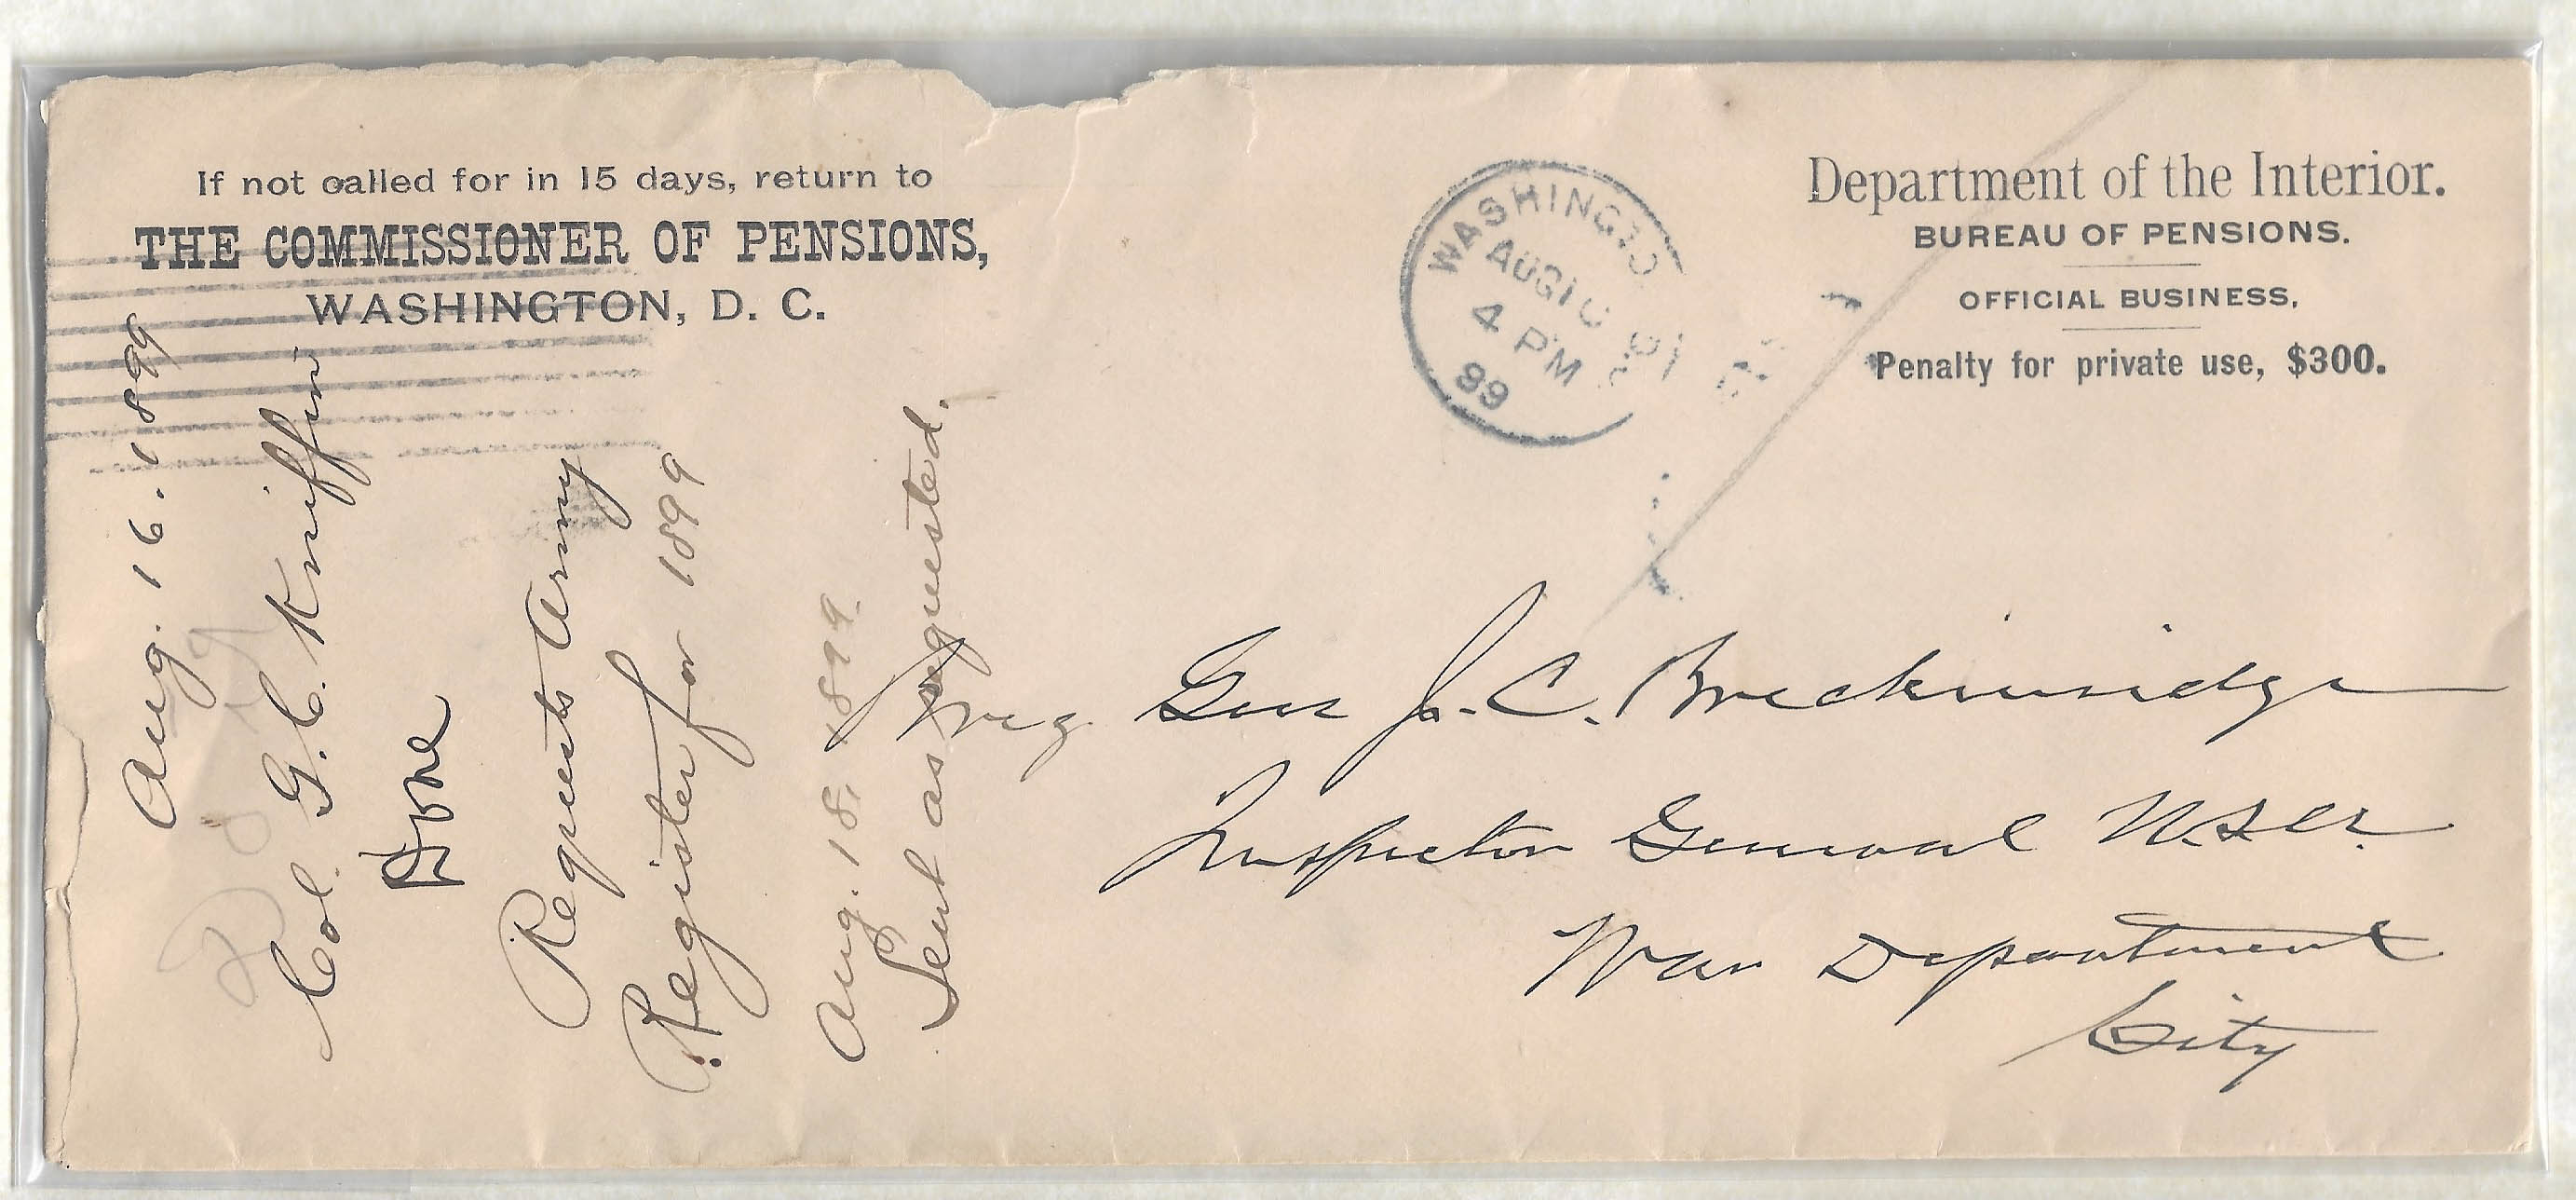 If not called for in 15 days, return to
THE COMMISSIONER OF PENSIONS,
WASHINGTON, D. C.
WASHINGTO
AUG 16
4 PM
99
Department of the Interior.
BUREAU OF PENSIONS.
OFFICIAL BUSINESS,
Penalty for private use, $300.
Aug. 16. 1899
Col. G. C. Kniffin
Requests Army
Register for 1899
Aug. 18, 1899.
Sent as requested.
Brig Gen J. C. Breckinridge
Inspector General U.S.A.
War Department
City